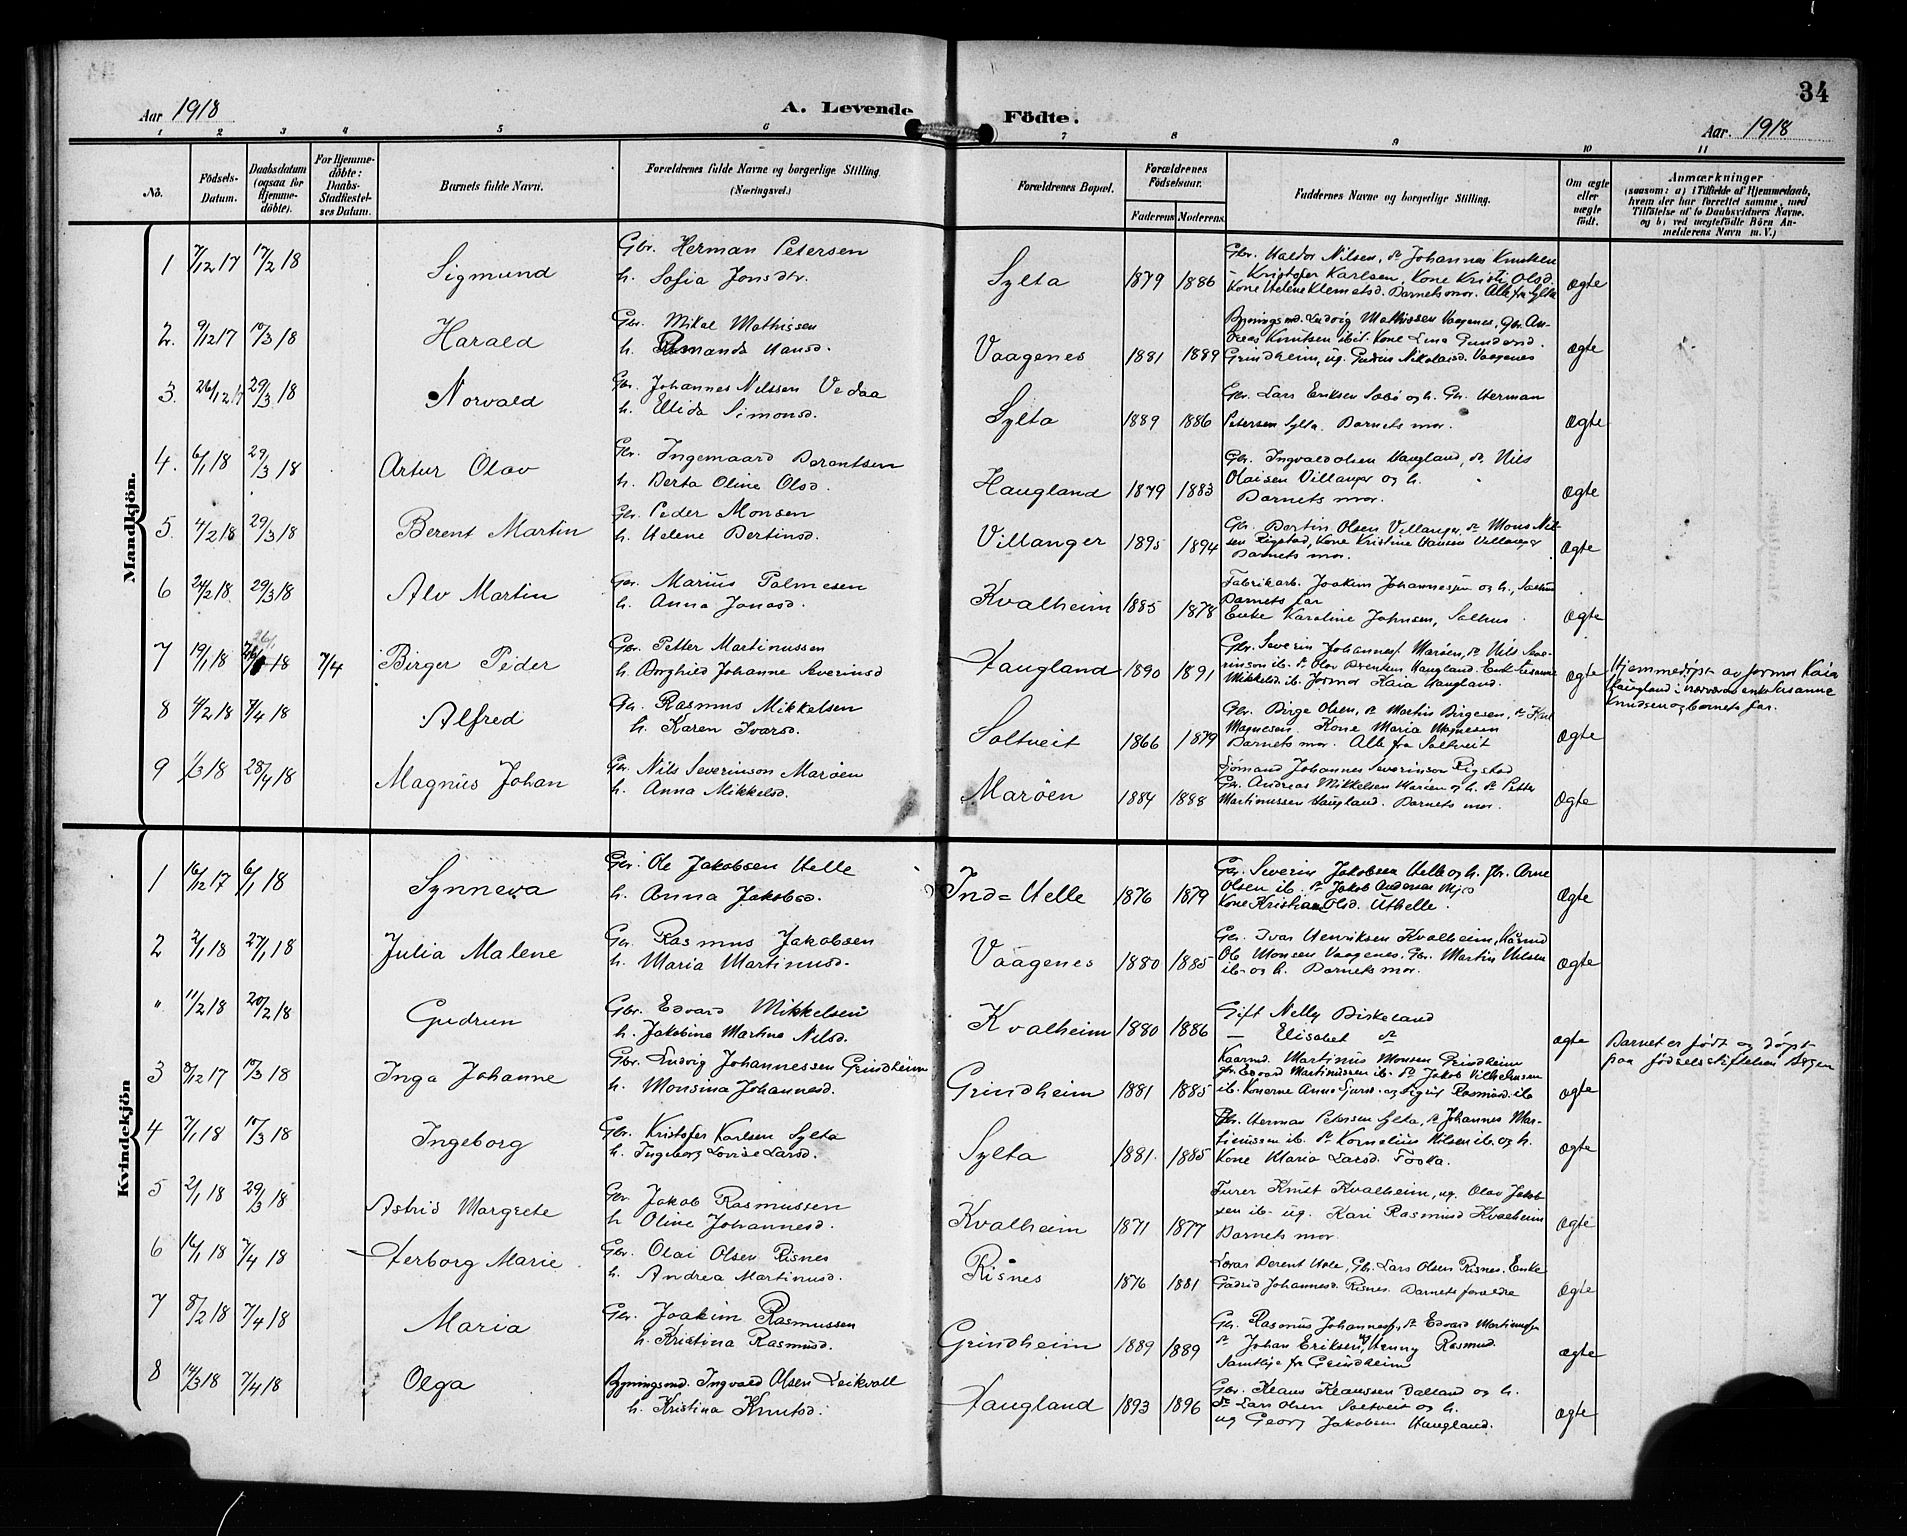 34
Aar 1918
A. Levende Födte.
Aar. 1918
1 2 3 4 5 6 7 8 9 10 11
No. Födsels-Datum. Daabsdatum (ogsaa for Hjemme-döbte). For Hjemme-döbte: Daabs-Stadfæstel-ses Datum. Barnets fulde Navn. Forældrenes fulde Navne og borgerlige Stilling. (Næringsvei.) Forældrenes Bopæl. Forældrenes Födselsaar. Faderens Moderens. Faddernes Navne og borgerlige Stilling. Om ægte eller uægte födt. Anmærkninger (saasom: a) i Tilfælde af Hjemmedaab, hvem der har forrettet samme, med Tilföielse af to Daabsvidners Navne, og b) ved uægtefödte Börn An-melderens Navn m. V.)
Mandkjön.
1 7/12 17 17/2 18 Sigmund Gbr. Herman Petersen Sylta 1879 1886 Gbr. Haldor Nilsen, do Johannes Knutsen ægte
h. Sofia Jonsdtr. - Kristofer Karlsen, Kone Kristi Olsd.
Kone Helene Klemetsd. Barnets mor. Alle fra Sylta
2. 9/12 17 10/3 18 Harald Gbr. Mikal Mathissen Vaagenes 1881 1889 Bygningsmd. Ludvig Mathissen Vaagenes, Gbr. An- ægte
h. Hansd. dreas Knutsen ibid. Kone Lina Gundersd.
Grindheim, ug. Nikolaisd. Vaagenes
3. 26/12 17 29/3 18 Norvald Gbr. Johannes Nilssen Vedaa Sylta 1889 1886 Gbr. Lars Eriksen Sæbö og h. Gbr. Herman ægte
h. Elida Simonsd. Petersen Sylta. Barnets mor.
4. 6/1 18 29/3 18 Artur Olav Gbr. Ingemaard Berentsen Haugland 1879 1883 Gbr. Ingvald Olsen Haugland, do. Nils ægte
h. Berta Oline Olsd. Olaisen Villanger og h.
Barnets mor.
5. 4/2 18 29/3 18 Berent Martin Gbr. Peder Monsen Villanger 1895 1894 Gbr. Bertin Olsen Villanger, do Mons Nil- ægte
h. Helene Bertinsd. sen Rigstad, Kone Kristine Hansen Villanger
Barnets mor.
6 24/2 18 29/3 18 Alv Martin Gbr. Marius Palmesen Kvalheim 1885 1878 Fabrikarb. Joakim Johannessen og h., Salhus ægte
h. Anna Jonasd. Barnets far
Enke Karoline Johnsen, Salhus.
7 19/1 18 26/1 18 7/4 Birger Peder Gbr. Petter Martinussen Haugland 1890 1891 Gbr. Severin Johannes. Marøen, do Nils Seve- ægte Hjemmedøpt av jormor Kaia
h. Borghild Johanne Severinsd rinson ib. do Olav Berentsen Haugland. Enke Susanne Haugland i nærvær av enke Susanne
Mikkelsd. ib. Jormor Kaia Haugland. Knudsen og barnets far.
8 4/2 18 7/4 18 Alfred Gbr. Rasmus Mikkelsen Soltveit 1866 1879 Gbr. Birge Olsen, do Martin Birgesen, do ægte
h. Karen Ivarsd. Magnesen. Kone Maria Magnesen
Barnets mor. Alle fra Saltveit
9 1/3 18 28/4 18 Magnus Johan Gbr. Nils Severinson Marøen Marøen 1884 1888 Sjømand Johannes Severinson Rigstad ægte
h. Anna Mikkelsd. Gbr. Andreas Mikkelsen Marøen og h. do Petter
Martinussen Haugland. Barnets mor.
Kvindekjön
1 16/12 17 6/1 18 Synneva Gbr. Ole Jakobsen Helle Ind=Helle 1876 1879 Gbr. Severin Jakobsen Helle og h. Gbr. Arne ægte
h. Anna Jakobsd. Olsen ib. do Jakob Andersen Mjøs
Kone Kristiane Olsd. Uthelle.
2 2/1 18 27/1 18 Julia Malene Gbr. Rasmus Jakobsen Vaagenes 1880 1885 Gbr. Ivar Henriksen Kvalheim, Kårmd ægte
h. Maria Martinusd. Ole Monsen Vaagenes, Gbr. Martin Nilsen
ib. og h. Barnets mor.
" 11/2 18 20/2 18 Gudrun Gbr. Edvard Mikkelsen Kvalheim 1880 1886 Gift Nelly Birkeland ægte Barnet er født og døpt
h. Jakobine Martha Nilsd. — Elisabet do paa fødselsstiftelsen Bergen
3 8/12 17 17/3 18 Inga Johanne Gbr. Ludvig Johannessen Grindheim Grindheim 1881 1885 Kaarmd. Martinus Monsen Grindheim ægte
h. Monsina Johannesd. Gbr. Edvard Martinussen ib. do Jakob Vilhelmsen
ib. Konerne Anna Sjursd. og Sigrid Rasmusd. ib
4 7/1 18 17/3 18 Ingeborg Gbr. Kristofer Karlsen Sylta Sylta 1881. 1885 Gbr. Herman Petersen Sylta, do Johannes Mar- ægte
h. Ingeborg Lovise Larsd. tinussen ib. do Kornelius Nilsen ib. og h.
Kone Maria Larsd. Toska.
5 2/1 18 29/3 18 Astrid Margrete Gbr. Jakob Rasmussen Kvalheim 1871 1877 Furer Knut Kvalheim, ug. Olav Jakob- ægte
h Oline Johannesd. sen ib. ug. Kari Rasmusd Kvalheim
Barnets mor.
6 16/1 18 7/4 18 Herborg Marie Gbr. Olai Olsen Risnes Risnes 1876 1881 Berent Hole, Gbr. Lars Olsen Risnes. Enke ægte
h. Andrea Martinusd. Gudrid Johannesd. Risnes. Barnets forældre
7 8/2 18 7/4 18 Maria Gbr. Joakim Rasmussen Grindheim 1889 1889 Gbr. Rasmus Johannesen, do Edvard Martinussen ægte
h. Kristina Rasmusd. do Johan Eriksen, ug Henny Rasmusd.
Samtlige fr Grindheim
8 14/3 18 7/4 18 Olga Bygningsmd. Ingvald Olsen Leikvoll Haugland 1893 1896 Gbr. Klaus Klaussen Dalland og h. ægte
h. Kristina Knutsd. do Lars Olsen Saltveit og h.
ug Georg Jakobsen Haugland.